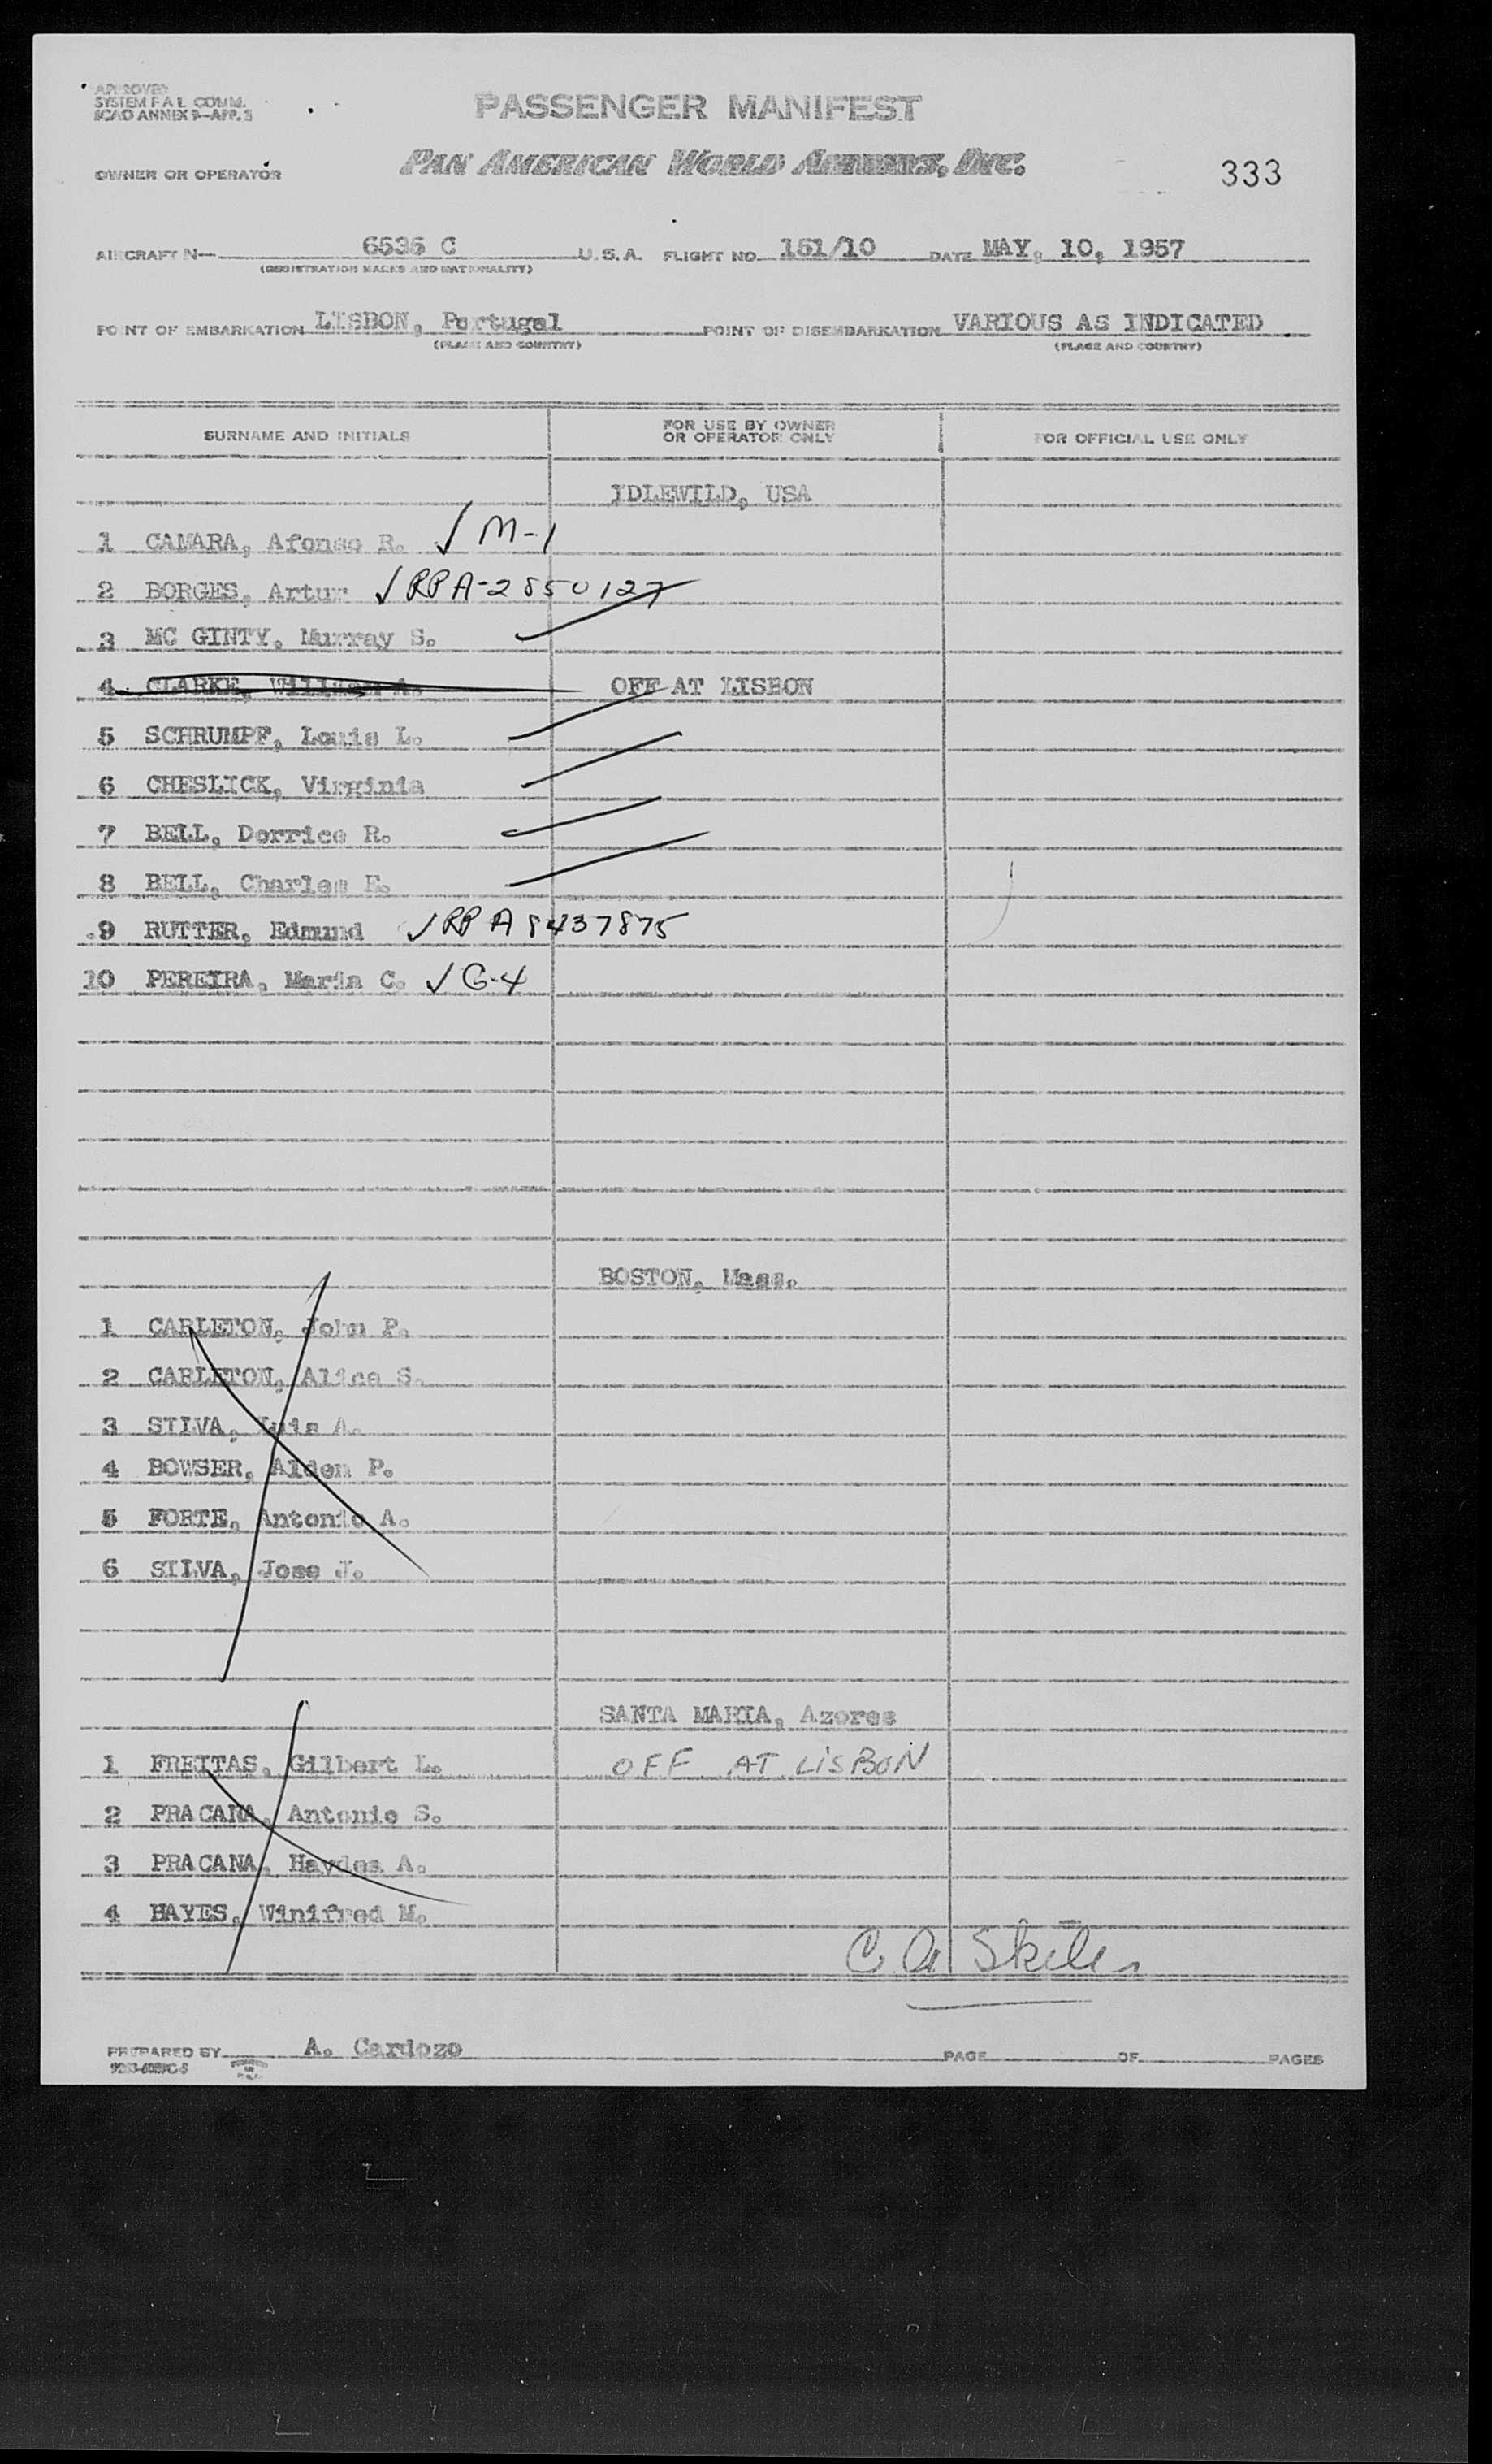 APPROVED
SYSTEM F A L COMM.
ICAO ANNEX 9-APP. 3
PASSENGER MANIFEST
OWNER OR OPERATOR PAN AMERICAN WORLD AIRWAYS, INC. 333
AIRCRAFT N- 6536 C U. S. A. FLIGHT NO. 151/10 DATE MAY, 10, 1957
(REGISTRATION MARKS AND NATIONALITY)
POINT OF EMBARKATION LISBON, Portugal POINT OF DISEMBARKATION VARIOUS AS INDICATED
(PLACE AND COUNTRY) (PLACE AND COUNTRY)
SURNAME AND INITIALS FOR USE BY OWNER OR OPERATOR ONLY FOR OFFICIAL USE ONLY
IDLEWILD, USA
1 CAMARA, Afonso R. √ M-1
2 BORGES, Artur √ RP A-2850127
3 MC GINTY, Murray S.
4 CLARKE, William A. OFF AT LISBON
5 SCHRUMPF, Louis L.
6 CHESLICK, Virginia
7 BELL, Dorrice R.
8 BELL, Charles E.
9 RUTTER, Edmund √ RP A8437875
10 PEREIRA, Maria C. √ G-4
BOSTON, Mass.
1 CARLETON, John P.
2 CARLETON, Alice S.
3 SILVA, Luis A.
4 BOWSER, Alden P.
5 FORTE, Antonio A.
6 SILVA, Jose J.
SANTA MARIA, Azores
1 FREITAS, Gilbert L. OFF AT LISBON
2 PRACANA, Antonio S.
3 PRACANA, Haydes A.
4 HAYES, Winifred M.
C. A. Skiles
PREPARED BY A. Cardozo PAGE OF PAGES